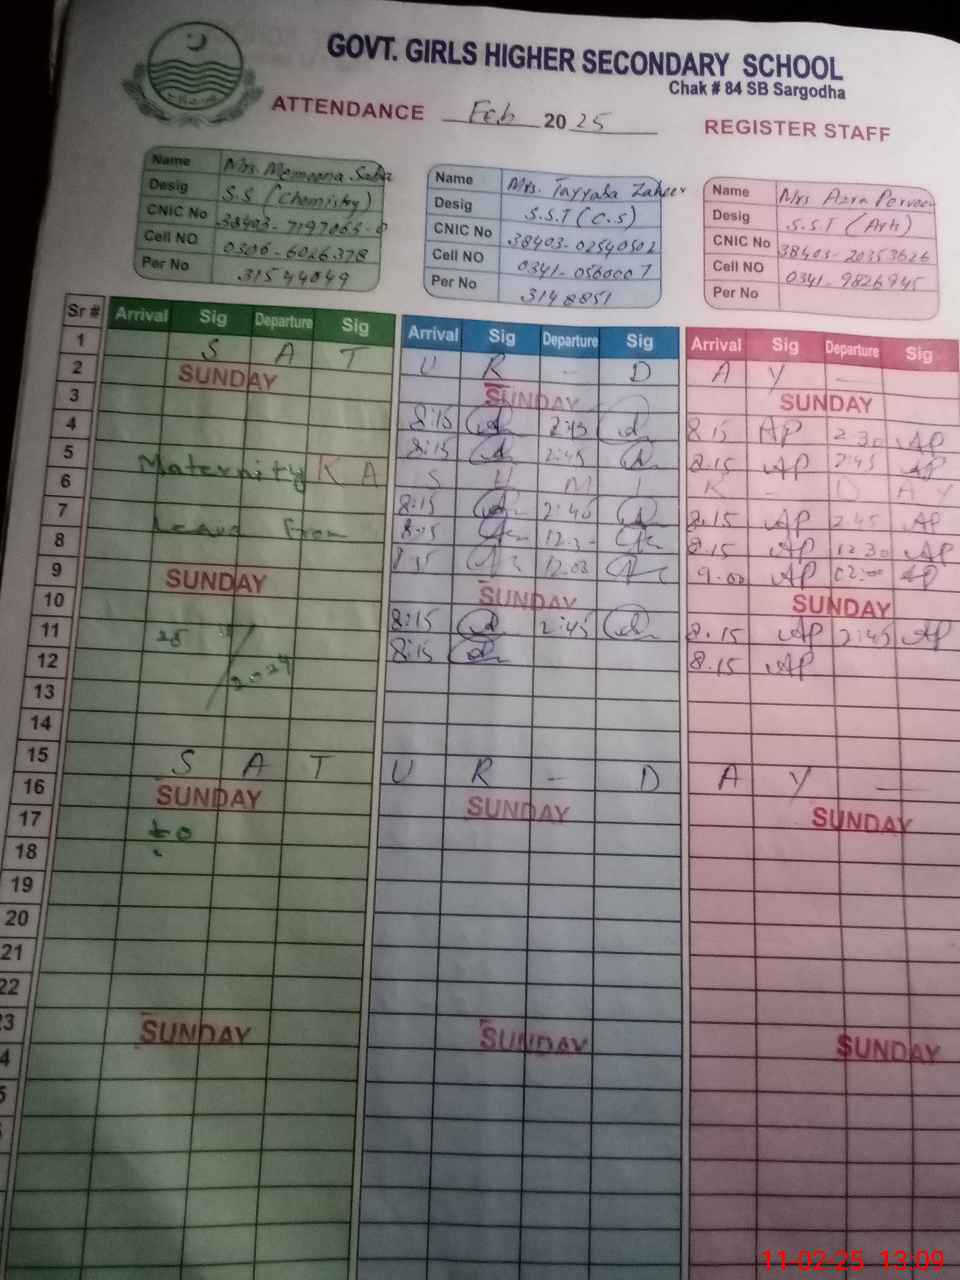 GOVT. GIRLS HIGHER SECONDARY SCHOOL
Chak # 84 SB Sargodha
ATTENDANCE Feb 2025 REGISTER STAFF
Name Mrs. Memoona Saba
Desig S.S (Chemistry)
CNIC No
Cell NO 0306-6026378
Per No 31544049
Name Mrs. Tayyaba Zaheer
Desig S.S.T (C.S)
CNIC No 38403-02540502
Cell NO 0341-0560007
Per No 3148851
Name Mrs Azra Parveen
Desig S.S.T (Arts)
CNIC No 38403-20353626
Cell NO 0341-9826945
Per No
Sr # Arrival Sig Departure Sig Arrival Sig Departure Sig Arrival Sig Departure Sig
1 S A T U R - D A Y -
2 SUNDAY SUNDAY SUNDAY
3 8:15 2:45 8.15 AP 2 30 AP
4 8:15 2:45 8.15 AP 2:45 AP
5 Maternity K A S H M I R - D A Y
6 8:15 2:45 8.15 AP 2 45 AP
7 Leave From 8:15 8.15 AP 12 30 AP
8 12.00 9.00 AP 02:00 AP
9 SUNDAY SUNDAY SUNDAY
10 8:15 2:45 8.15 AP 2:45 AP
11 8:15 8.15 AP
12 2024
13
14
15 S A T U R - D A Y -
16 SUNDAY SUNDAY SUNDAY
17 to
18
19
20
21
22
23 SUNDAY SUNDAY SUNDAY
4
5
11-02-25 13:09